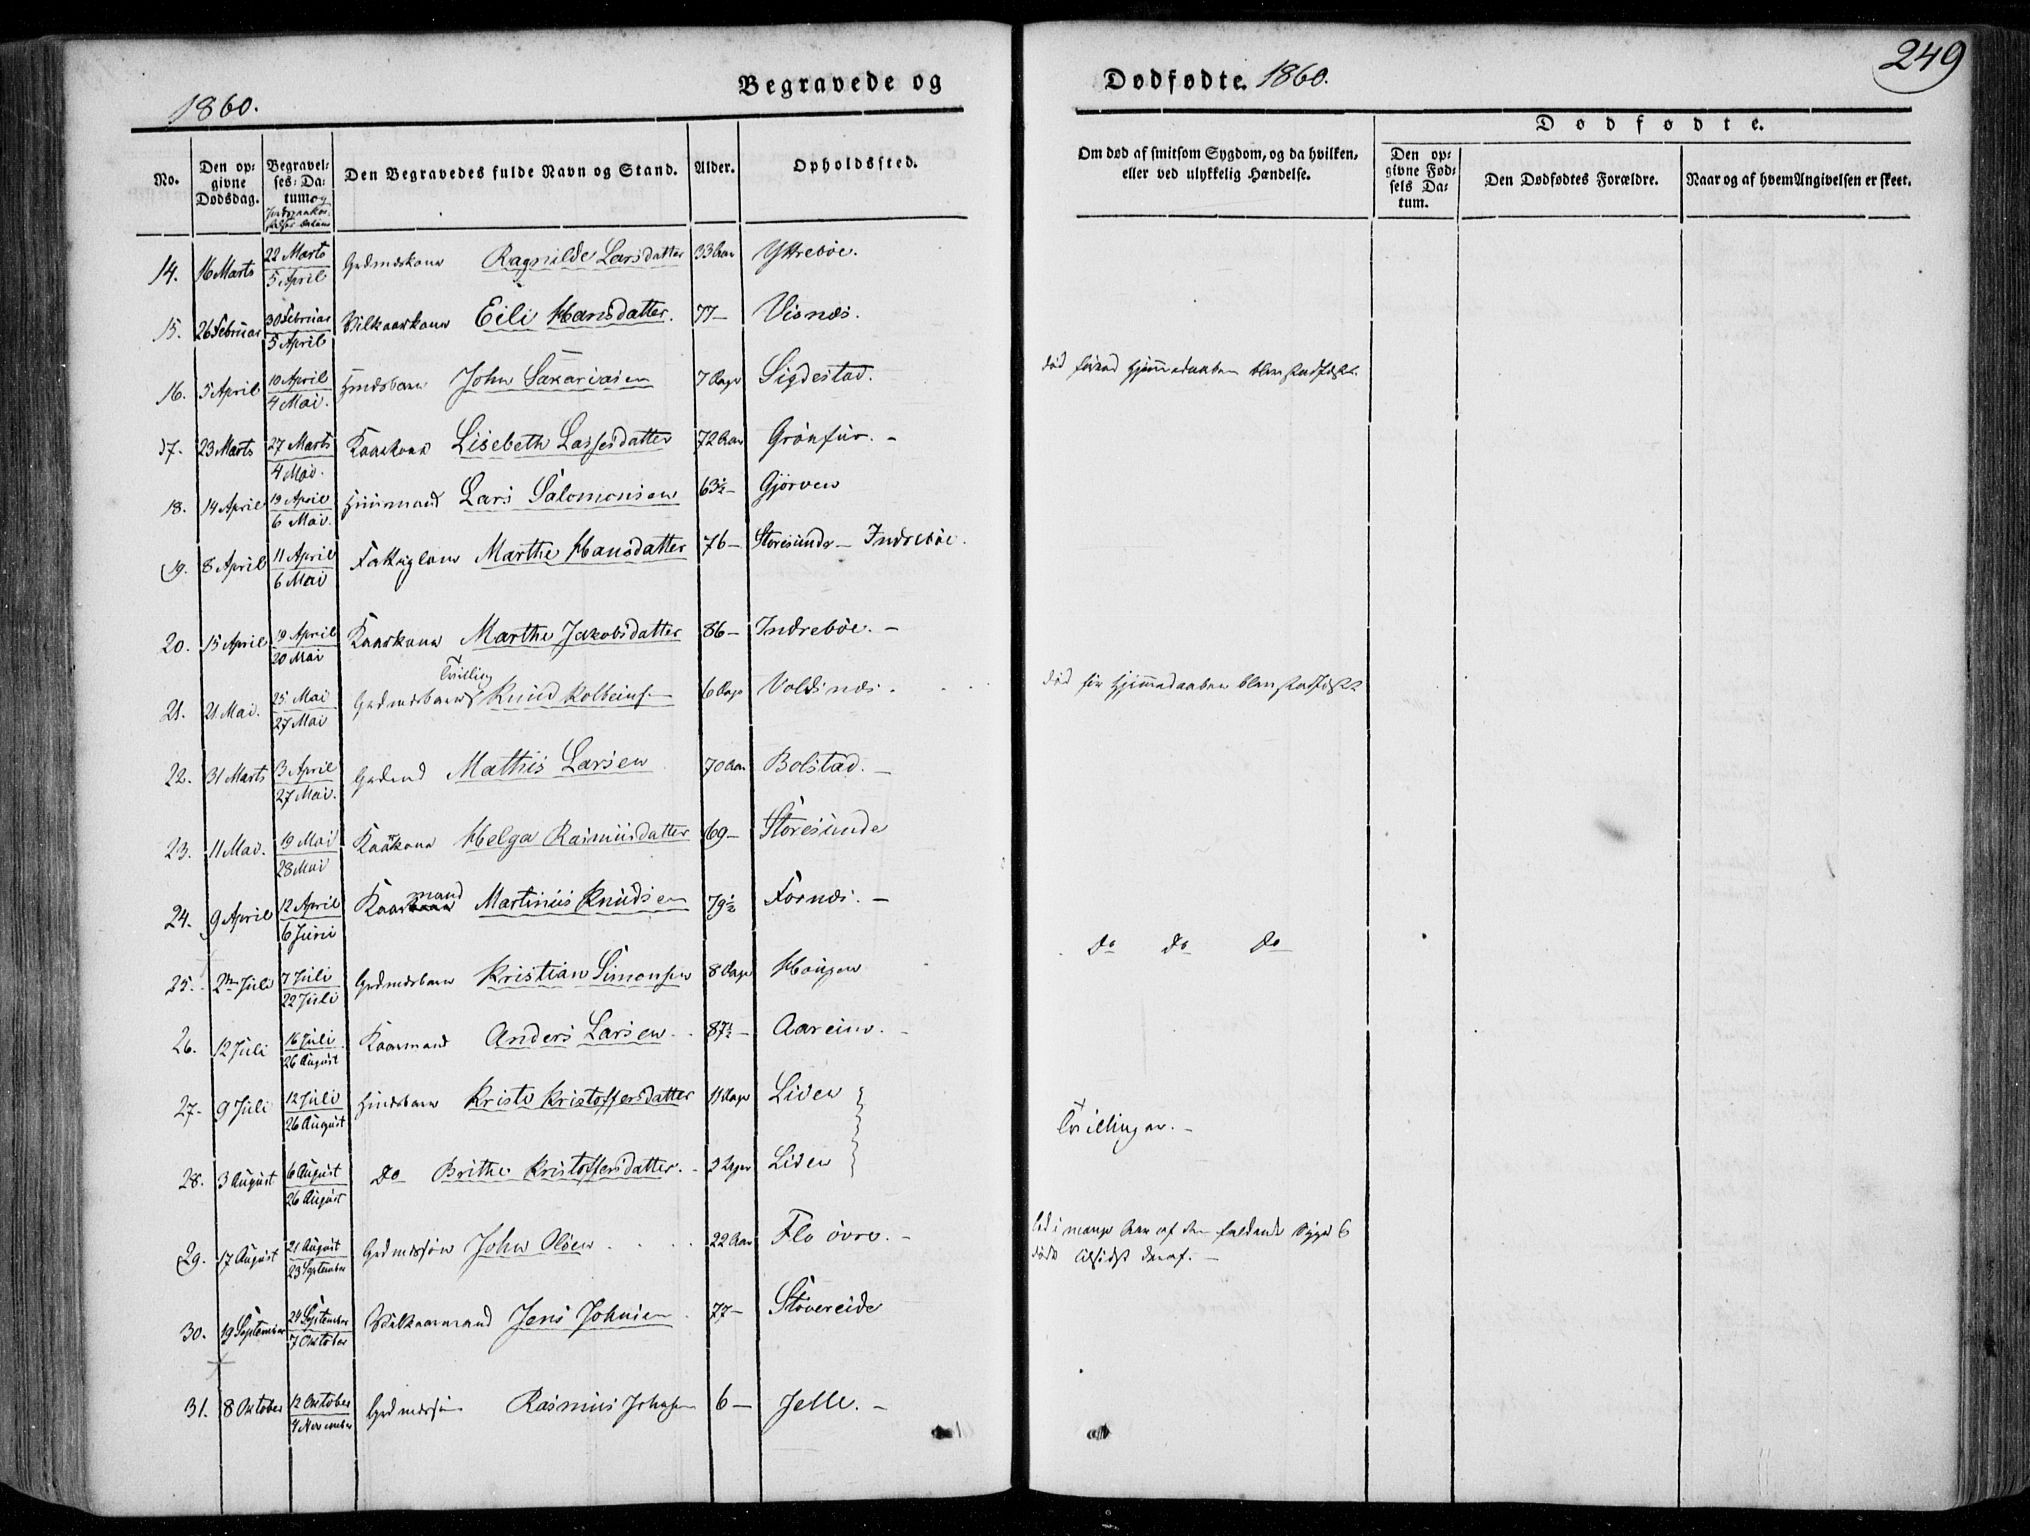 249
1860.
Begravede og
Dødfødte. 1860.
No.
Den opgivne Dødsdag.
Begravelses-Datum og Jordpaakastelses datum
Den Begravedes fulde Navn og Stand.
Alder.
Opholdssted.
Om død af smitsom Sygdom, og da hvilken, eller ved ulykkelig Hændelse.
Dødfødte.
Den opgivne Fødsels Datum.
Den Dødfødtes Forældre.
Naar og af hvem Angivelsen er skeet.
14. 16 Marts 22 Marts 5 April Grdmdskone Ragnilde Larsdatter 33 Aar Yttrebøe.
15. 26 Februar 30 Februar 5 April Vilkaarskone Eili Hansdatter. 77 — Visnæs.
16. 5 April 10 April 4 Mai. Huusbarn John Sakariasen 7 Dage Sigdestad. død førend Hjemmedaaben blev stadfæstet
17. 23 Marts 27 Marts 4 Mai. Kaarkone Lisebeth Lassesdatter 72 Aar Grønfur. —
18. 14 April 19 April 6 Mai. Huusmand Lars Salomonsen 63½ — Gjørven
19. 8 April 11 April 6 Mai Fattiglem Marthe Hansdatter 76 — Storesunde — Indrebøe.
20. 15 April 19 April 20 Mai Kaarkone Marthe Jakobsdatter 86 — Indrebøe. —
21. 21 Mai. 25 Mai 27 Mai Grdmdsbarn Tvilling Knud Kolbeinsen 6 Dage Voldsnæs. død før Hjemmedaaben blev stadfæstet
22. 31 Marts 3 April 27 Mai. Grdmd Mathis Larsen 70 Aar Bolstad. —
23. 11 Mai. 19 Mai 28 Mai Kaarkone Helga Rasmusdatter 69 — Storesunde
24. 9 April 12 April 6 Juni Kaarmand Martinus Knudsen 79½ Fornæs. —
25. 2den Juli 7 Juli 22 Juli Grdmdsbarn Kristian Simonsen 8 Dage Hougen Do Do Do
26. 12 Juli 16 Juli 26 August Kaarmand Anders Larsen 87½ — Aareim. —
27. 9 Juli 12 Juli 26 August Huusbarn Kristi Kristoffersdatter 11 Dage Liden
Tvillinger. —
28. 3 August 6 August 26 August Do Brithe Kristoffersdatter. Liden
29. 17 August 21 August 23 September Grdmdssøn John Olsen 22 Aar Flo øvre. — led i mange Aar af den faldende Syge &
døde tilsidst deraf. —
30. 19 September 24 September 7 Oktober Vilkaarmand Jens Johnsen 77 — Støvereide
31. 8 Oktober 12 Oktober 4 November Grdmdssøn Rasmus Johnsen 6 — Jelle. —